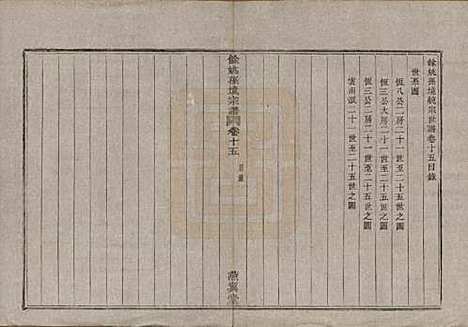 餘姚孫境宗世譜卷十五目錄
世系圖
恆八公二房二十一世至二十五世之圖
恆三公大房二十一世至二十五世之圖
恆三公二房二十一世至二十五世之圖
雲南派二十一世至二十五世之圖
餘姚孫境宗譜
卷十五
目錄
燕翼堂